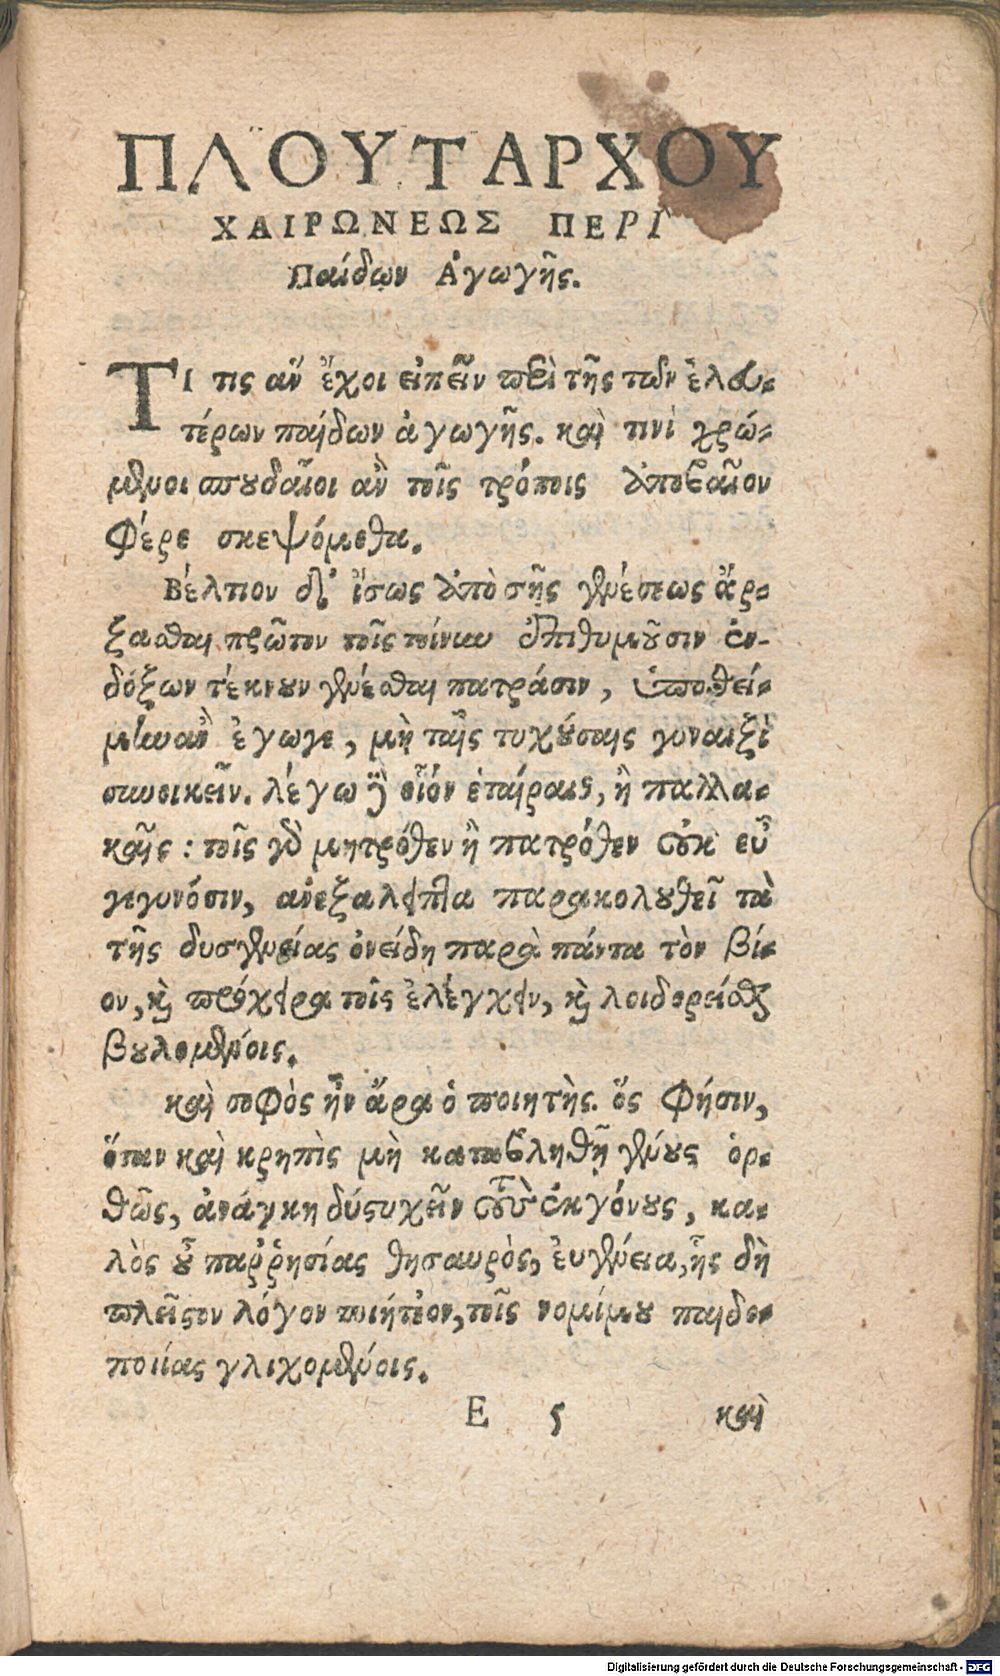 ΠΛΟΥΤΑΡΧΟΥ
ΧΑΙΡΩΝΕΩΣ ΠΕΡΙ
Παίδων Ἀγωγῆς.
ΤΙ τις ἂν ἔχοι εἰπεῖν περὶ τῆς τῶν ἐλευ-
τέρων παίδων ἀγωγῆς. καὶ τινὶ χρώ-
μενοι σπουδαῖοι ἂν τοῖς τρόποις ἀποβαῖον
φέρε σκεψόμεθα.
Βέλτιον δ' ἴσως ἀπὸ τῆς γενέσεως ἄρ-
ξασθαι πρῶτον τοῖς τοίνυν ἐπιθυμοῦσιν ἐν-
δόξων τέκνων γενέσθαι πατράσιν, ὑποθεί-
μην ἂν ἔγωγε, μὴ ταῖς τυχούσαις γυναιξὶ
συνοικεῖν. λέγω δὲ οἷόν ἑταίραις, ἢ παλλα-
καῖς: τοῖς γὰρ μητρόθεν ἢ πατρόθεν οὐκ εὖ
γεγονόσιν, ἀνεξάλειπτα παρακολουθεῖ τὰ
τῆς δυσγενείας ὀνείδη παρὰ πάντα τὸν βί-
ον, καὶ πρόχειρα τοῖς ἐλέγχειν, καὶ λοιδορείσθαι
βουλομένοις.
καὶ σοφὸς ἦν ἄρα ὁ ποιητὴς. ὅς φήσιν,
ὅταν καὶ κρηπὶς μὴ καταβληθῇ γένους ὀρ-
θῶς, ἀνάγκη δύστυχεῖν τοὺς ἐκγόνους, κα-
λὸς οὖ παῤῥησίας θησαυρὸς, ἐυγένεια, ἧς δὴ
πλεῖστον λόγον ποιήτέον, τοῖς νομίμου παιδο-
ποιίας γλιχομένοις.
E 5 καὶ
Digitalisierung gefördert durch die Deutsche Forschungsgemeinschaft - DFG